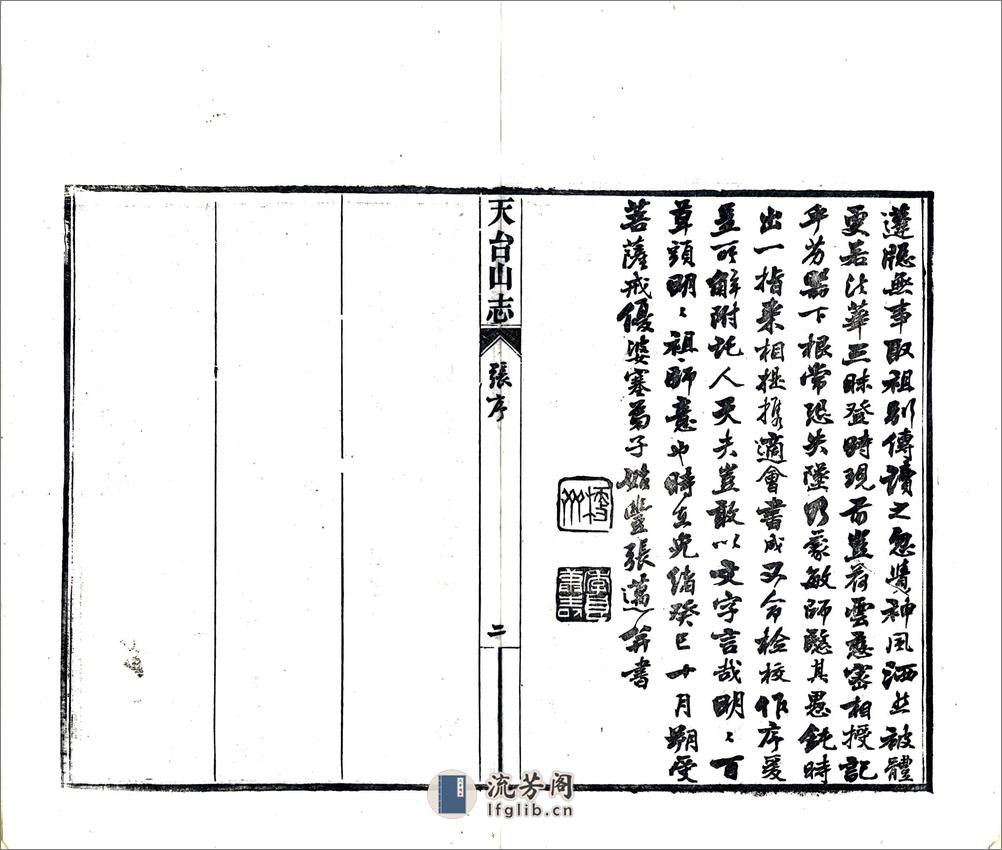 蘧牕無事取祖別傳讀之忽覺神風洒然被體
更若法華三昧登時現前豈荷雲應密相授記
乎苐器下根常恐失墜乃蒙敏師愍其愚鈍時
出一指乘相提携適會書成又命檢校作序爰
述所解附託人天夫豈敢以文字言哉明〻百
草頭明〻祖師意也時在光緒癸巳十月朔受
菩薩戒優婆塞弟子始豐張邁并書
天台山志
張序
二
流芳阁
lfglib.cn